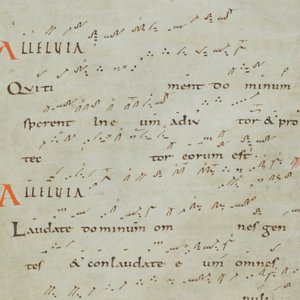 ALLELUIA
Quiti ment do minum
sperent Ine um adiu tor & pro
tec tor eorum est
ALLELUIA
Laudate dominum om nes gen
tes & conlaudate e um omnes
puli